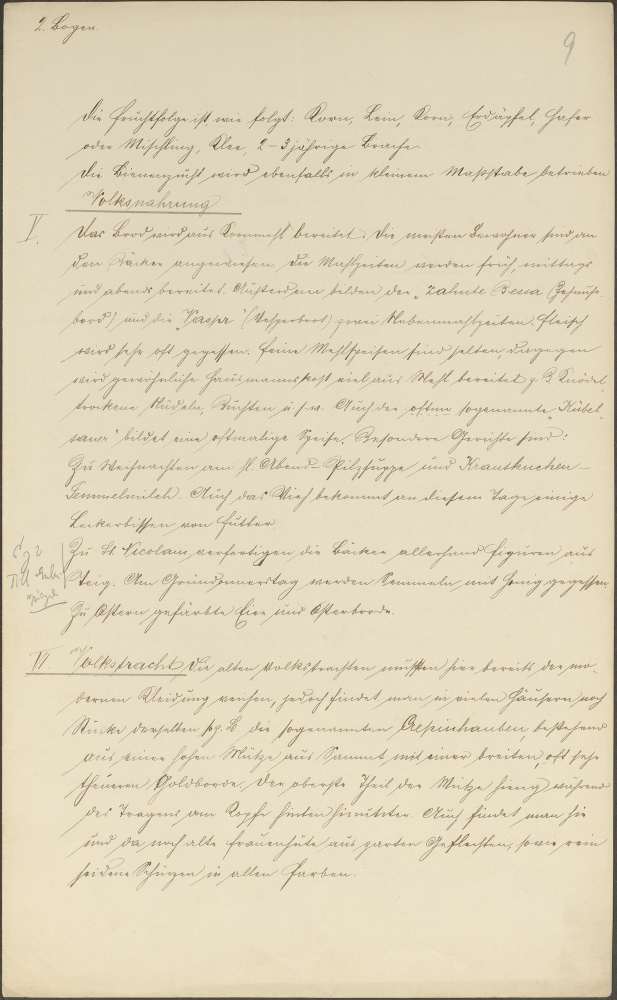 2. Bogen.
9
Die Fruchtfolge ist wie folgt: Korn, Lein, Korn, Erdäpfel, Hafer
oder Mischling, Klee, 2-3 jährige Brache.
Die Bienenzucht wird ebenfalls in kleinem Maßstabe betrieben
Volksnahrung
V. Das Brod wird aus Kornmehl bereitet. Die meisten Bewohner sind an
den Bäcker angewiesen. Die Mahlzeiten werden früh, mittags
und abends bereitet. Außerdem bilden der "Zahnte (Zehnuhr-
brod) und die "Vasper" (Vesperbrot) zwei Nebenmahlzeiten. Fleisch
wird sehr oft gegessen. Feine Mehlspeisen sind selten, dagegen
wird gewöhnliche Hausmannskost viel aus Mehl bereitet z. B. Knödel,
trockene Nudeln, Buchten u. s. w. Auch der sogenannte "Kübel-
" bildet eine oftmalige Speise. Besondere Gerichte sind:
Zu Weihnachten am hl. Abend - Pilzsuppe und
Semmelmilch. Auch das Vieh bekommt an diesem Tage einige
Leckerbissen von Futter.
Zu St. Nicolam verfertigen die Bäcker allerhand Figuren aus
Teig. Am Gründonnerstag werden Semmeln mit Honig gegessen
Zu Ostern gefärbte Eier und Osterbrode.
VI Volkstracht. Die alten Volkstrachten mußten hier bereits der mo-
dernen Kleidung weichen, jedoch findet man in vielen Häusern noch
Stücke derselben so z. B. die sogenannten bestehend
aus einer hohen Mütze aus Sammt mit einer breiten, oft sehr
theueren Goldborde. Der oberste Theil der Mütze hieng während
des Tragens am Kopfe hinten hinunter. Auch findet man hie
und da noch alte Frauenhüte aus zarten Geflechten, sowie rein
seidene Schürzen in allen Farben.